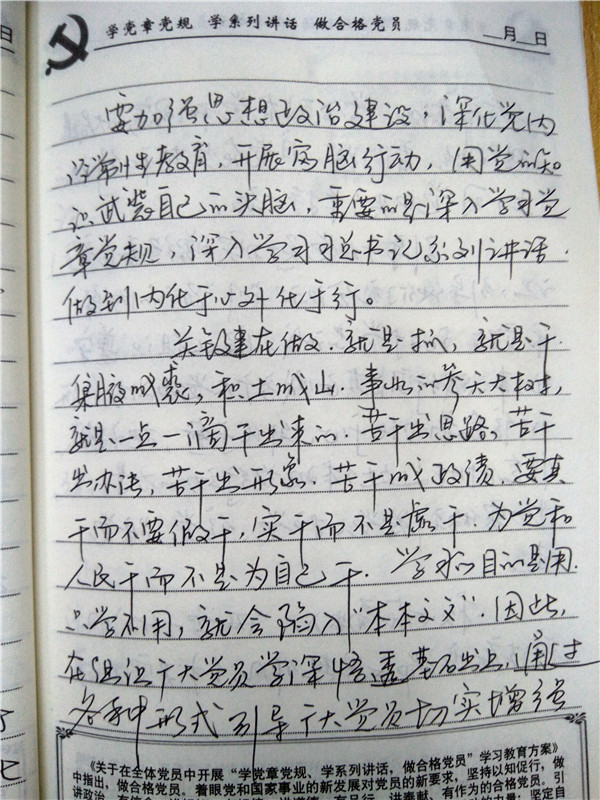 学党章党规 学系列讲话 做合格党员
月 日
要加强思想政治建设，深化党内
经常性教育，开展 脑行动，用党的知
识武装自己的头脑，重要的是深入学习党
章党规，深入学习习总书记系列讲话.
做到内化于心外化于行。
关键在做.就是抓，就是干.
集腋成裘，积土成山.事业的参天大树，
就是一点一滴干出来的.苦干出思路，苦干
出办法，苦干出形象.苦干成政绩.要真
干而不要假干，实干而不是虚干.为党和
人民干而不是为自己干. 学习的目的是用.
只学不用，就会陷入“本本主义”.因此，
在组织广大党员学深悟透基础上，通过
各种形式引导广大党员切实增强
《关于在全体党员中开展“学党章党规、学系列讲话，做合格党员”学习教育方案》
中指出，做合格党员。着眼党和国家事业的新发展对党员的新要求，坚持以知促行，做